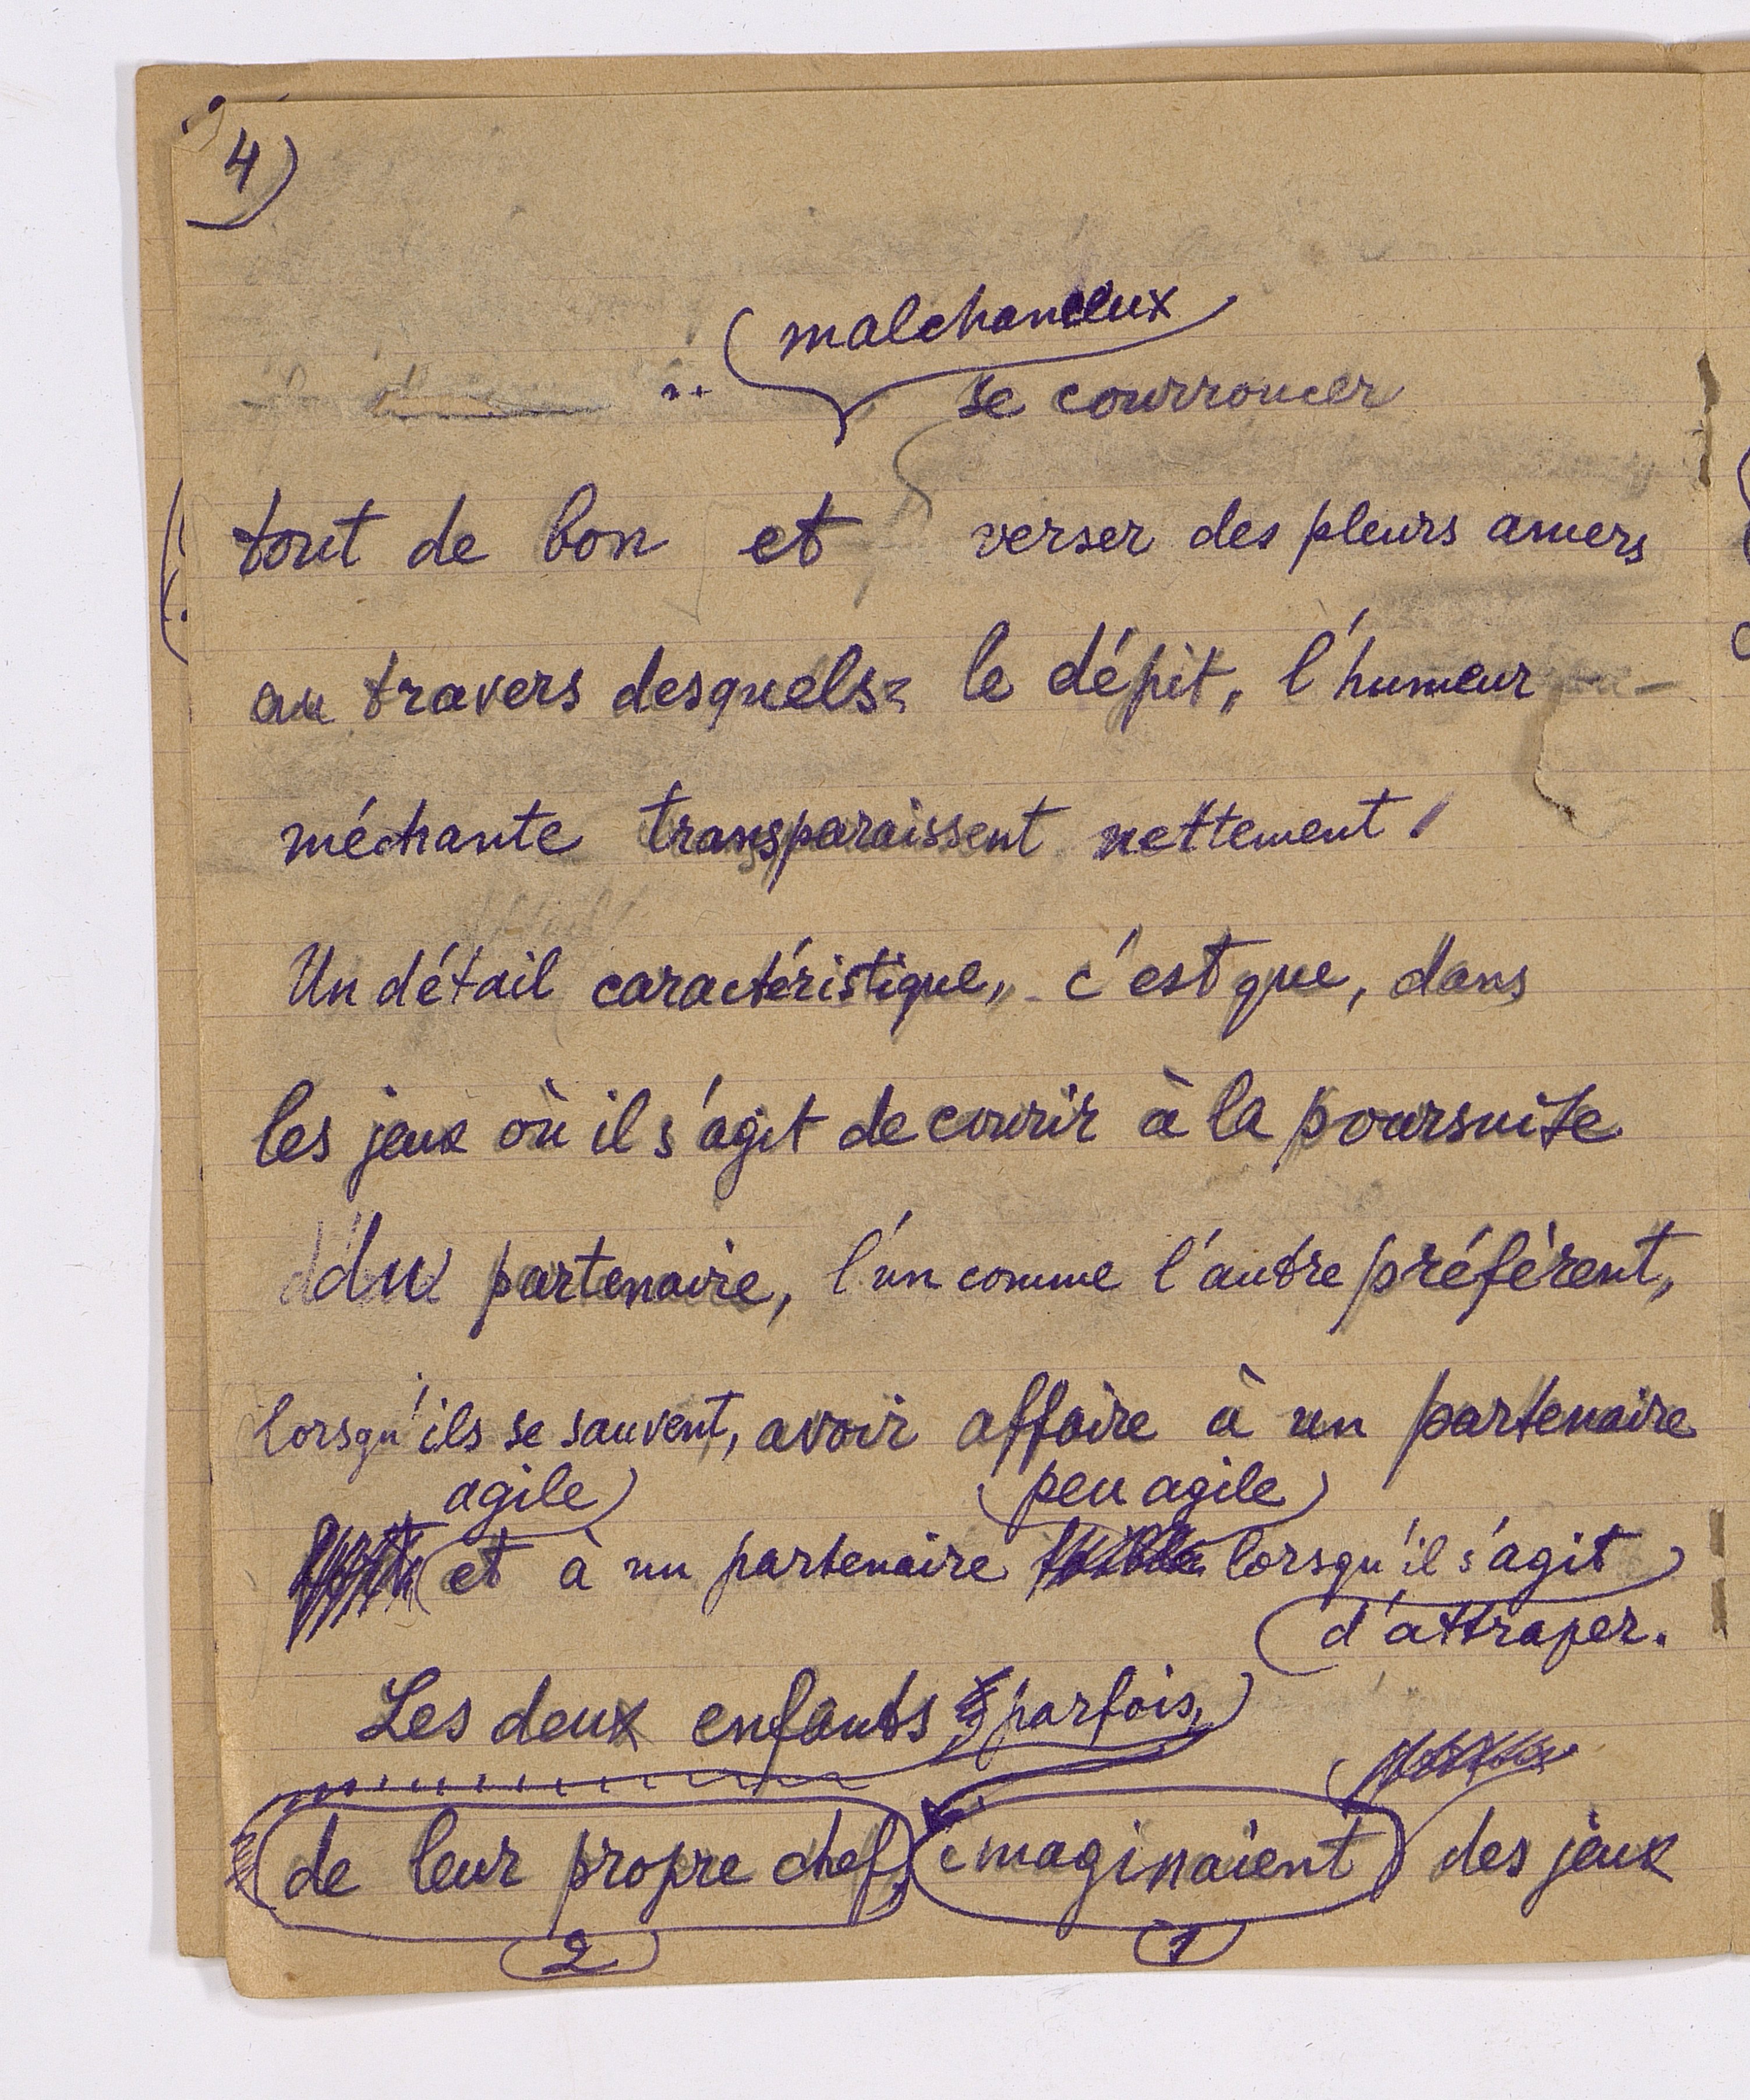 4)
malchanceux
se courroucer
tout de bon et verser des pleurs amers
au travers desquels le dépit, l'humeur
méchante transparaissent nettement.
Un détail caractéristique, c'est que, dans
les jeux où il s'agit de courir à la poursuite
du partenaire, l'un comme l'autre préfèrent,
lorsqu'ils se sauvent, avoir affaire à un partenaire
agile peu agile
et à un partenaire lorsqu'il s'agit
d'attraper.
Les deux enfants parfois,
de leur propre chef, imaginaient des jeux
2 1